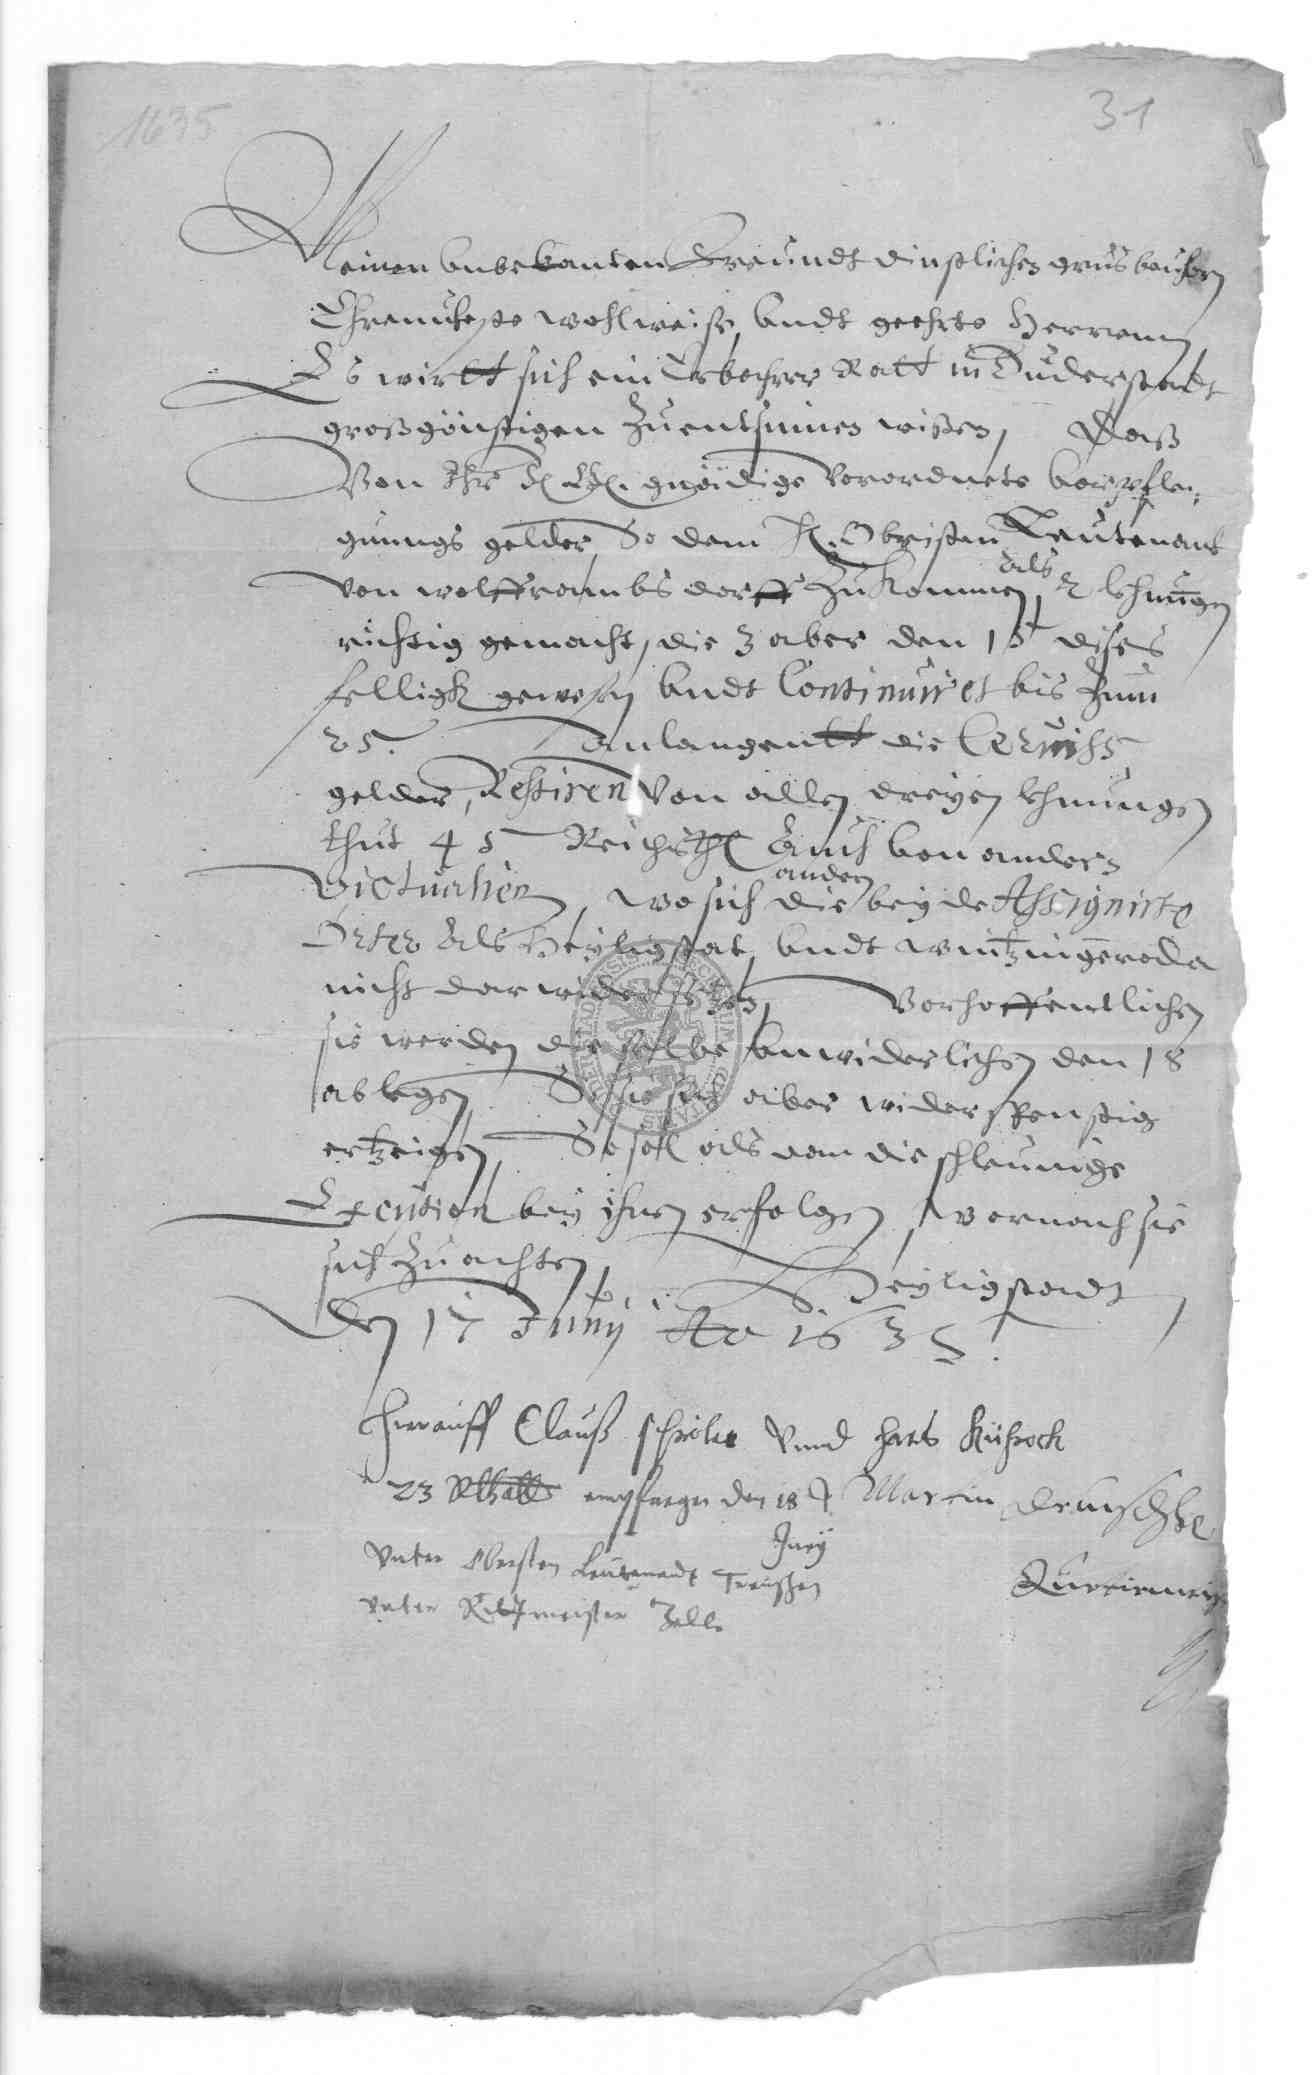 1635
31
Meinen unbekanten Freundt dinstlichen grus bevohrn
Ehrnuheste wohlweise, undt geehrte Herren
Es wirtt sich ein Erbahrer Ratt in Duderstadt
großgönstigen Zuentsinnen wißen, Daß
Von Ihr gnädige Verordnete Verpfle-
gunngs gelder So dem H. Obristen Leutenant
als
von wolfframbs dorff Zukommen, 2 lehnungen
richtig gemacht, die 3 aber den 15 dises
felligk gewesen undt Continuiret bis Zum
25. Anlangentt die Serviss
gelder, Restiren Von allen dreyen lehnungen
thut 45 Reichsthl Auch von andern
andern
Victualien, wo sich die beyde Assignirte
Örter Als Heyligstat, undt wintzingeroda
nicht darwider setzen, Verhoffentlichen
sie werden dieselbe unwiderlichen den 18
ablegen So sie sich aber widerspenstig
ertzeigen So soll als dan die schleunige
Execution bey ihnen erfolgen, wornach sie
sich Zuachten, Heyligstadt
Den 17 Juny Ao 1635.
Hierauff Clauß Vnnd Hans
23 Rthall empfangen den 18
Juny
Martin
Vnter Obersten Leutenandt
Vnter Rittmeister Zelle